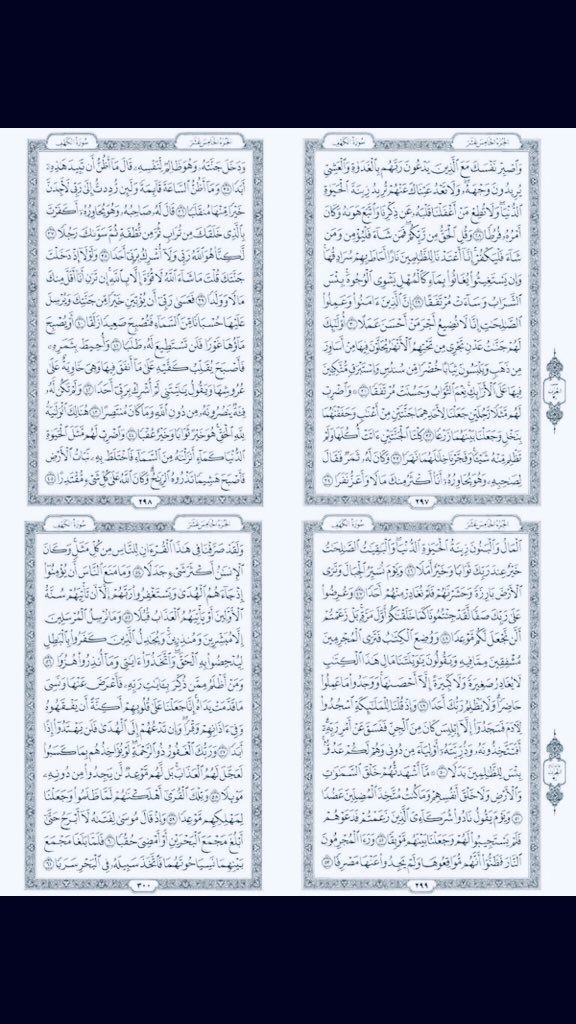 الجزء الخامس عشر
سورة الكهف
وَٱصْبِرْ نَفْسَكَ مَعَ ٱلَّذِينَ يَدْعُونَ رَبَّهُم بِٱلْغَدَوٰةِ وَٱلْعَشِيِّ
يُرِيدُونَ وَجْهَهُۥۖ وَلَا تَعْدُ عَيْنَاكَ عَنْهُمْ تُرِيدُ زِينَةَ ٱلْحَيَوٰةِ
ٱلدُّنْيَاۖ وَلَا تُطِعْ مَنْ أَغْفَلْنَا قَلْبَهُۥ عَن ذِكْرِنَا وَٱتَّبَعَ هَوَىٰهُ وَكَانَ
أَمْرُهُۥ فُرُطًا ٢٨ وَقُلِ ٱلْحَقُّ مِن رَّبِّكُمْۖ فَمَن شَآءَ فَلْيُؤْمِن وَمَن
شَآءَ فَلْيَكْفُرْۚ إِنَّآ أَعْتَدْنَا لِلظَّٰلِمِينَ نَارًا أَحَاطَ بِهِمْ سُرَادِقُهَاۚ
وَإِن يَسْتَغِيثُوا۟ يُغَاثُوا۟ بِمَآءٍ كَٱلْمُهْلِ يَشْوِى ٱلْوُجُوهَۚ بِئْسَ
ٱلشَّرَابُ وَسَآءَتْ مُرْتَفَقًا ٢٩ إِنَّ ٱلَّذِينَ ءَامَنُوا۟ وَعَمِلُوا۟
ٱلصَّٰلِحَٰتِ إِنَّا لَا نُضِيعُ أَجْرَ مَنْ أَحْسَنَ عَمَلًا ٣٠ أُو۟لَٰٓئِكَ
لَهُمْ جَنَّٰتُ عَدْنٍ تَجْرِى مِن تَحْتِهِمُ ٱلْأَنْهَٰرُ يُحَلَّوْنَ فِيهَا مِنْ أَسَاوِرَ
مِن ذَهَبٍ وَيَلْبَسُونَ ثِيَابًا خُضْرًا مِّن سُندُسٍ وَإِسْتَبْرَقٍ مُّتَّكِـِٔينَ
فِيهَا عَلَى ٱلْأَرَآئِكِۚ نِعْمَ ٱلثَّوَابُ وَحَسُنَتْ مُرْتَفَقًا ٣١ وَٱضْرِبْ
لَهُم مَّثَلًا رَّجُلَيْنِ جَعَلْنَا لِأَحَدِهِمَا جَنَّتَيْنِ مِنْ أَعْنَٰبٍ وَحَفَفْنَٰهُمَا
بِنَخْلٍ وَجَعَلْنَا بَيْنَهُمَا زَرْعًا ٣٢ كِلْتَا ٱلْجَنَّتَيْنِ ءَاتَتْ أُكُلَهَا وَلَمْ
تَظْلِم مِّنْهُ شَيْـًٔاۚ وَفَجَّرْنَا خِلَٰلَهُمَا نَهَرًا ٣٣ وَكَانَ لَهُۥ ثَمَرٌ فَقَالَ
لِصَٰحِبِهِۦ وَهُوَ يُحَاوِرُهُۥٓ أَنَا۠ أَكْثَرُ مِنكَ مَالًا وَأَعَزُّ نَفَرًا ٣٤
٢٩٧
الجزء الخامس عشر
سورة الكهف
وَدَخَلَ جَنَّتَهُۥ وَهُوَ ظَالِمٌ لِّنَفْسِهِۦ قَالَ مَآ أَظُنُّ أَن تَبِيدَ هَٰذِهِۦٓ
أَبَدًا ٣٥ وَمَآ أَظُنُّ ٱلسَّاعَةَ قَآئِمَةً وَلَئِن رُّدِدتُّ إِلَىٰ رَبِّى لَأَجِدَنَّ
خَيْرًا مِّنْهَا مُنقَلَبًا ٣٦ قَالَ لَهُۥ صَاحِبُهُۥ وَهُوَ يُحَاوِرُهُۥٓ أَكَفَرْتَ
بِٱلَّذِى خَلَقَكَ مِن تُرَابٍ ثُمَّ مِن نُّطْفَةٍ ثُمَّ سَوَّىٰكَ رَجُلًا ٣٧
لَّٰكِنَّا۠ هُوَ ٱللَّهُ رَبِّى وَلَآ أُشْرِكُ بِرَبِّىٓ أَحَدًا ٣٨ وَلَوْلَآ إِذْ دَخَلْتَ
جَنَّتَكَ قُلْتَ مَا شَآءَ ٱللَّهُ لَا قُوَّةَ إِلَّا بِٱللَّهِۚ إِن تَرَنِ أَنَا۠ أَقَلَّ مِنكَ
مَالًا وَوَلَدًا ٣٩ فَعَسَىٰ رَبِّىٓ أَن يُؤْتِيَنِ خَيْرًا مِّن جَنَّتِكَ وَيُرْسِلَ
عَلَيْهَا حُسْبَانًا مِّنَ ٱلسَّمَآءِ فَتُصْبِحَ صَعِيدًا زَلَقًا ٤٠ أَوْ يُصْبِحَ
مَآؤُهَا غَوْرًا فَلَن تَسْتَطِيعَ لَهُۥ طَلَبًا ٤١ وَأُحِيطَ بِثَمَرِهِۦ
فَأَصْبَحَ يُقَلِّبُ كَفَّيْهِ عَلَىٰ مَآ أَنفَقَ فِيهَا وَهِىَ خَاوِيَةٌ عَلَىٰ
عُرُوشِهَا وَيَقُولُ يَٰلَيْتَنِى لَمْ أُشْرِكْ بِرَبِّىٓ أَحَدًا ٤٢ وَلَمْ تَكُن لَّهُۥ
فِئَةٌ يَنصُرُونَهُۥ مِن دُونِ ٱللَّهِ وَمَا كَانَ مُنتَصِرًا ٤٣ هُنَالِكَ ٱلْوَلَٰيَةُ
لِلَّهِ ٱلْحَقِّۚ هُوَ خَيْرٌ ثَوَابًا وَخَيْرٌ عُقْبًا ٤٤ وَٱضْرِبْ لَهُم مَّثَلَ ٱلْحَيَوٰةِ
ٱلدُّنْيَا كَمَآءٍ أَنزَلْنَٰهُ مِنَ ٱلسَّمَآءِ فَٱخْتَلَطَ بِهِۦ نَبَاتُ ٱلْأَرْضِ
فَأَصْبَحَ هَشِيمًا تَذْرُوهُ ٱلرِّيَٰحُۗ وَكَانَ ٱللَّهُ عَلَىٰ كُلِّ شَىْءٍ مُّقْتَدِرًا ٤٥
٢٩٨
الجزء الخامس عشر
سورة الكهف
ٱلْمَالُ وَٱلْبَنُونَ زِينَةُ ٱلْحَيَوٰةِ ٱلدُّنْيَاۖ وَٱلْبَٰقِيَٰتُ ٱلصَّٰلِحَٰتُ
خَيْرٌ عِندَ رَبِّكَ ثَوَابًا وَخَيْرٌ أَمَلًا ٤٦ وَيَوْمَ نُسَيِّرُ ٱلْجِبَالَ وَتَرَى
ٱلْأَرْضَ بَارِزَةً وَحَشَرْنَٰهُمْ فَلَمْ نُغَادِرْ مِنْهُمْ أَحَدًا ٤٧ وَعُرِضُوا۟
عَلَىٰ رَبِّكَ صَفًّا لَّقَدْ جِئْتُمُونَا كَمَا خَلَقْنَٰكُمْ أَوَّلَ مَرَّةٍۭۚ بَلْ زَعَمْتُمْ
أَلَّن نَّجْعَلَ لَكُم مَّوْعِدًا ٤٨ وَوُضِعَ ٱلْكِتَٰبُ فَتَرَى ٱلْمُجْرِمِينَ
مُشْفِقِينَ مِمَّا فِيهِ وَيَقُولُونَ يَٰوَيْلَتَنَا مَالِ هَٰذَا ٱلْكِتَٰبِ
لَا يُغَادِرُ صَغِيرَةً وَلَا كَبِيرَةً إِلَّآ أَحْصَىٰهَاۚ وَوَجَدُوا۟ مَا عَمِلُوا۟
حَاضِرًاۗ وَلَا يَظْلِمُ رَبُّكَ أَحَدًا ٤٩ وَإِذْ قُلْنَا لِلْمَلَٰٓئِكَةِ ٱسْجُدُوا۟
لِـَٔادَمَ فَسَجَدُوٓا۟ إِلَّآ إِبْلِيسَ كَانَ مِنَ ٱلْجِنِّ فَفَسَقَ عَنْ أَمْرِ رَبِّهِۦٓۗ
أَفَتَتَّخِذُونَهُۥ وَذُرِّيَّتَهُۥٓ أَوْلِيَآءَ مِن دُونِى وَهُمْ لَكُمْ عَدُوٌّۢۚ
بِئْسَ لِلظَّٰلِمِينَ بَدَلًا ٥٠ مَّآ أَشْهَدتُّهُمْ خَلْقَ ٱلسَّمَٰوَٰتِ
وَٱلْأَرْضِ وَلَا خَلْقَ أَنفُسِهِمْ وَمَا كُنتُ مُتَّخِذَ ٱلْمُضِلِّينَ عَضُدًا
٥١ وَيَوْمَ يَقُولُ نَادُوا۟ شُرَكَآءِىَ ٱلَّذِينَ زَعَمْتُمْ فَدَعَوْهُمْ
فَلَمْ يَسْتَجِيبُوا۟ لَهُمْ وَجَعَلْنَا بَيْنَهُم مَّوْبِقًا ٥٢ وَرَءَا ٱلْمُجْرِمُونَ
ٱلنَّارَ فَظَنُّوٓا۟ أَنَّهُم مُّوَاقِعُوهَا وَلَمْ يَجِدُوا۟ عَنْهَا مَصْرِفًا ٥٣
٢٩٩
الجزء الخامس عشر
سورة الكهف
وَلَقَدْ صَرَّفْنَا فِى هَٰذَا ٱلْقُرْءَانِ لِلنَّاسِ مِن كُلِّ مَثَلٍۚ وَكَانَ
ٱلْإِنسَٰنُ أَكْثَرَ شَىْءٍ جَدَلًا ٥٤ وَمَا مَنَعَ ٱلنَّاسَ أَن يُؤْمِنُوٓا۟
إِذْ جَآءَهُمُ ٱلْهُدَىٰ وَيَسْتَغْفِرُوا۟ رَبَّهُمْ إِلَّآ أَن تَأْتِيَهُمْ سُنَّةُ
ٱلْأَوَّلِينَ أَوْ يَأْتِيَهُمُ ٱلْعَذَابُ قُبُلًا ٥٥ وَمَا نُرْسِلُ ٱلْمُرْسَلِينَ
إِلَّا مُبَشِّرِينَ وَمُنذِرِينَۚ وَيُجَٰدِلُ ٱلَّذِينَ كَفَرُوا۟ بِٱلْبَٰطِلِ
لِيُدْحِضُوا۟ بِهِ ٱلْحَقَّۖ وَٱتَّخَذُوٓا۟ ءَايَٰتِى وَمَآ أُنذِرُوا۟ هُزُوًا ٥٦
وَمَنْ أَظْلَمُ مِمَّن ذُكِّرَ بِـَٔايَٰتِ رَبِّهِۦ فَأَعْرَضَ عَنْهَا وَنَسِىَ
مَا قَدَّمَتْ يَدَاهُۚ إِنَّا جَعَلْنَا عَلَىٰ قُلُوبِهِمْ أَكِنَّةً أَن يَفْقَهُوهُ
وَفِىٓ ءَاذَانِهِمْ وَقْرًاۖ وَإِن تَدْعُهُمْ إِلَى ٱلْهُدَىٰ فَلَن يَهْتَدُوٓا۟ إِذًا
أَبَدًا ٥٧ وَرَبُّكَ ٱلْغَفُورُ ذُو ٱلرَّحْمَةِۖ لَوْ يُؤَاخِذُهُم بِمَا كَسَبُوا۟
لَعَجَّلَ لَهُمُ ٱلْعَذَابَۚ بَل لَّهُم مَّوْعِدٌ لَّن يَجِدُوا۟ مِن دُونِهِۦ
مَوْئِلًا ٥٨ وَتِلْكَ ٱلْقُرَىٰٓ أَهْلَكْنَٰهُمْ لَمَّا ظَلَمُوا۟ وَجَعَلْنَا
لِمَهْلِكِهِم مَّوْعِدًا ٥٩ وَإِذْ قَالَ مُوسَىٰ لِفَتَىٰهُ لَآ أَبْرَحُ حَتَّىٰٓ
أَبْلُغَ مَجْمَعَ ٱلْبَحْرَيْنِ أَوْ أَمْضِىَ حُقُبًا ٦٠ فَلَمَّا بَلَغَا مَجْمَعَ
بَيْنِهِمَا نَسِيَا حُوتَهُمَا فَٱتَّخَذَ سَبِيلَهُۥ فِى ٱلْبَحْرِ سَرَبًا ٦١
٣٠٠